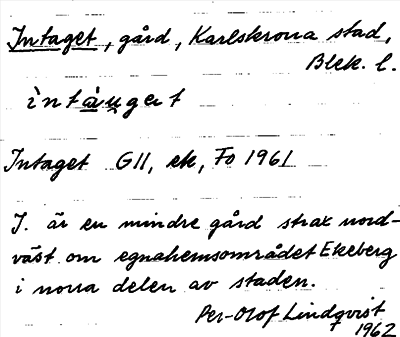 Intaget, gård, Karlskrona stad,
Blek. l.
ìntàugert
Intaget GII, ek, Fo 1961
I. är en mindre gård strax nord-
väst om egnahemsområdet Ekeberg
i norra delen av staden.
Per-Olof Lindqvist
1962